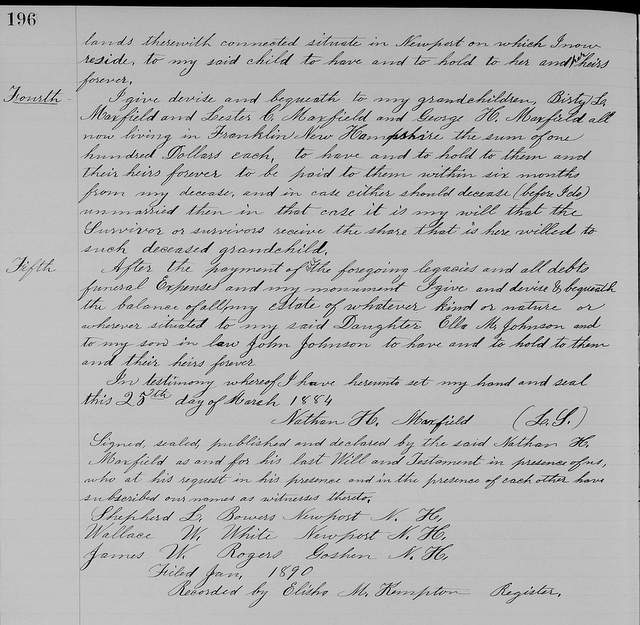 196
lands therewith connected situate in Newport on which I now
reside, to my said child to have and to hold to her and her heirs
forever.
Fourth
I give devise and bequeath to my grandchildren, Birty L.
Maxfield and Lester C. Maxfield and George H. Maxfield all
now living in Franklin New Hampshire the sum of one
hundred Dollars each, to have and to hold to them and
their heirs forever to be paid to them within six months
from my decease, and in case either should decease (before I do)
unmarried then in that case it is my will that the
Survivor or survivors receive the share that is here willed to
such deceased grandchild.
Fifth
After the payment of the foregoing legacies and all debts
funeral Expenses and my monument I give and devise & bequeath
the balance of all my estate of whatever kind or nature or
wherever situated to my said Daughter Ella M. Johnson and
to my son in law John Johnson to have and to hold to them
and their heirs forever
In testimony whereof I have hereunto set my hand and seal
this 25th day of March 1884
Nathan H. Maxfield (L.S.)
Signed, sealed, published and declared by the said Nathan H.
Maxfield as and for his last Will and Testament in presence of us,
who at his request in his presence and in the presence of each other have
subscribed our names as witnesses thereto.
Shepherd L. Bowers Newport N. H.
Wallace W. White Newport N. H.
James W. Rogers Goshen N. H.
Filed Jan, 1890
Recorded by Elisha M. Kempton Register.